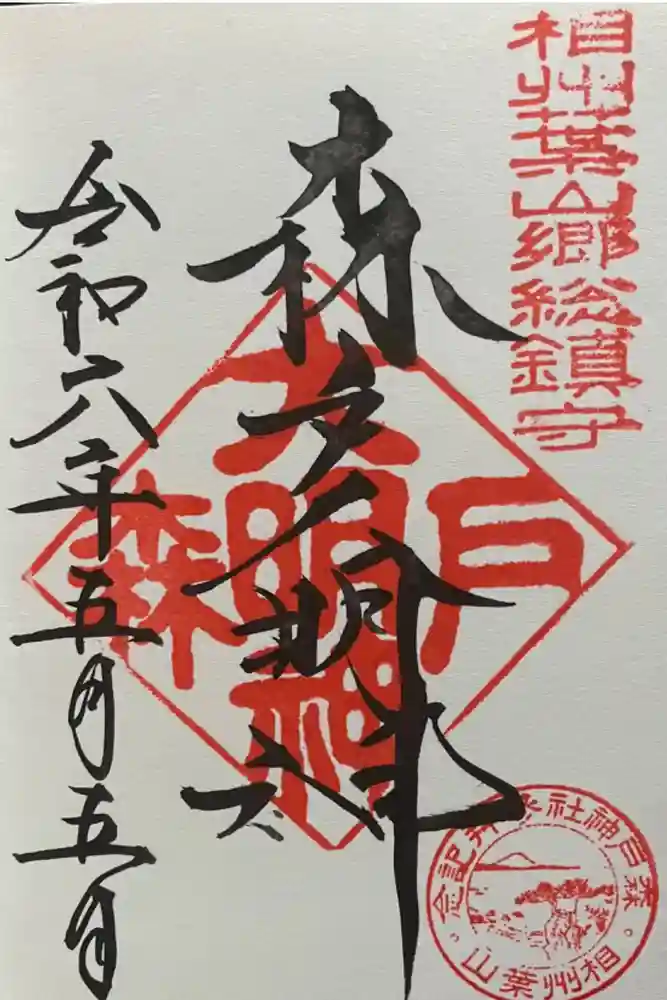 相州葉山郷総鎮守
森戸大明神
森戸大明神
令和六年五月五日
森戸神社参拝記念
相州葉山